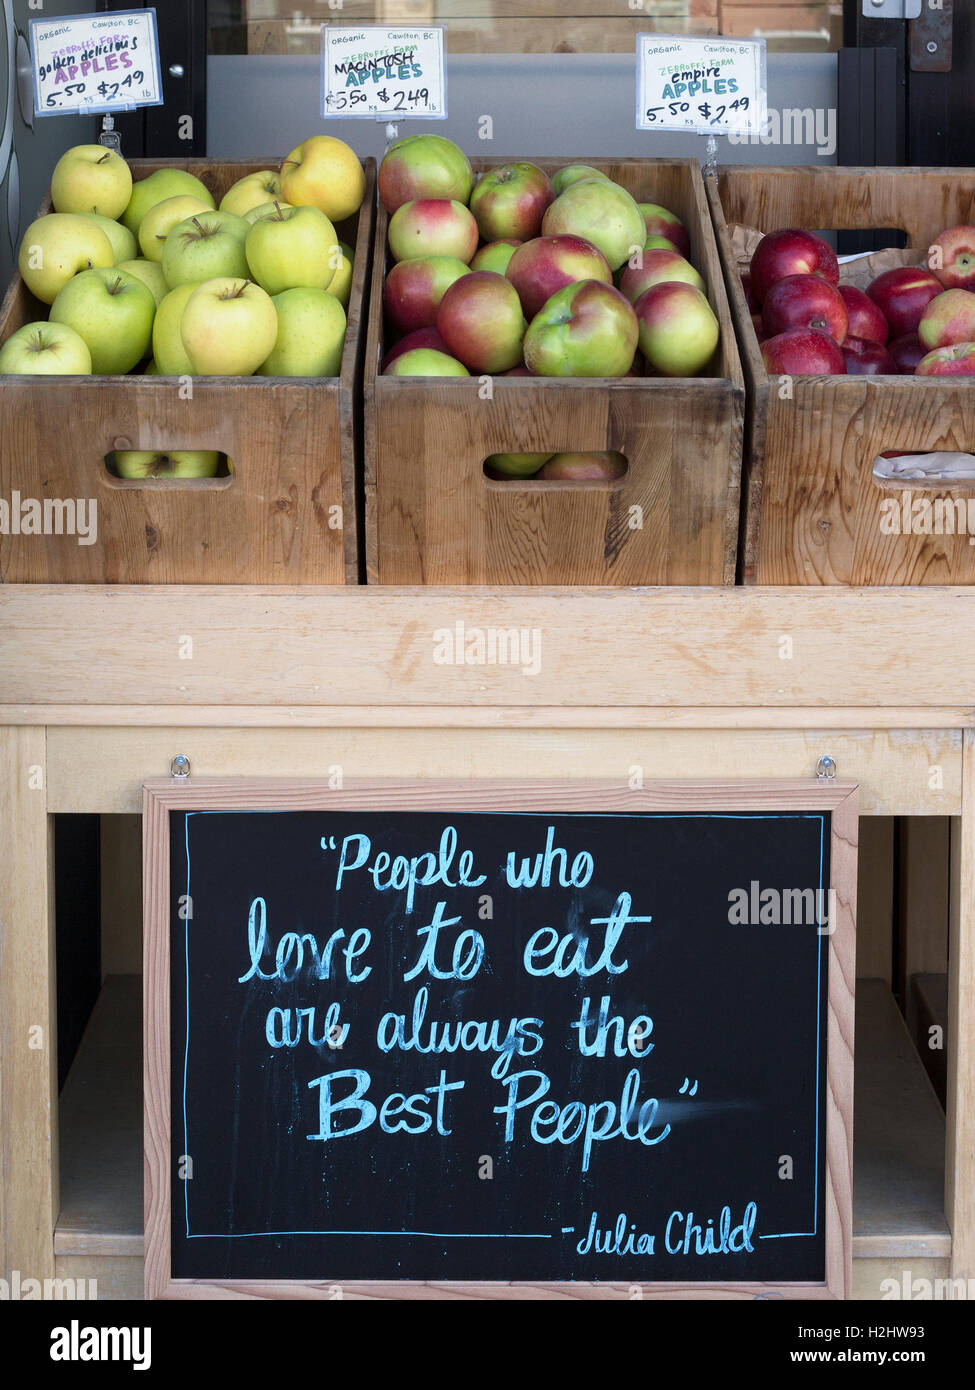 ORGANIC Cawston, BC
ZEBROFF'S FARM
golden delicious
APPLES
5.50 kg $2.49 lb
ORGANIC Cawston, BC
ZEBROFF'S FARM
MACINTOSH
APPLES
$5.50 kg $2.49 lb
ORGANIC Cawston, BC
ZEBROFF'S FARM
empire
APPLES
5.50 kg $2.49 lb
"People who
love to eat
are always the
Best People"
-Julia Child
alamy
alamy stock photo
H2HW93
www.alamy.com